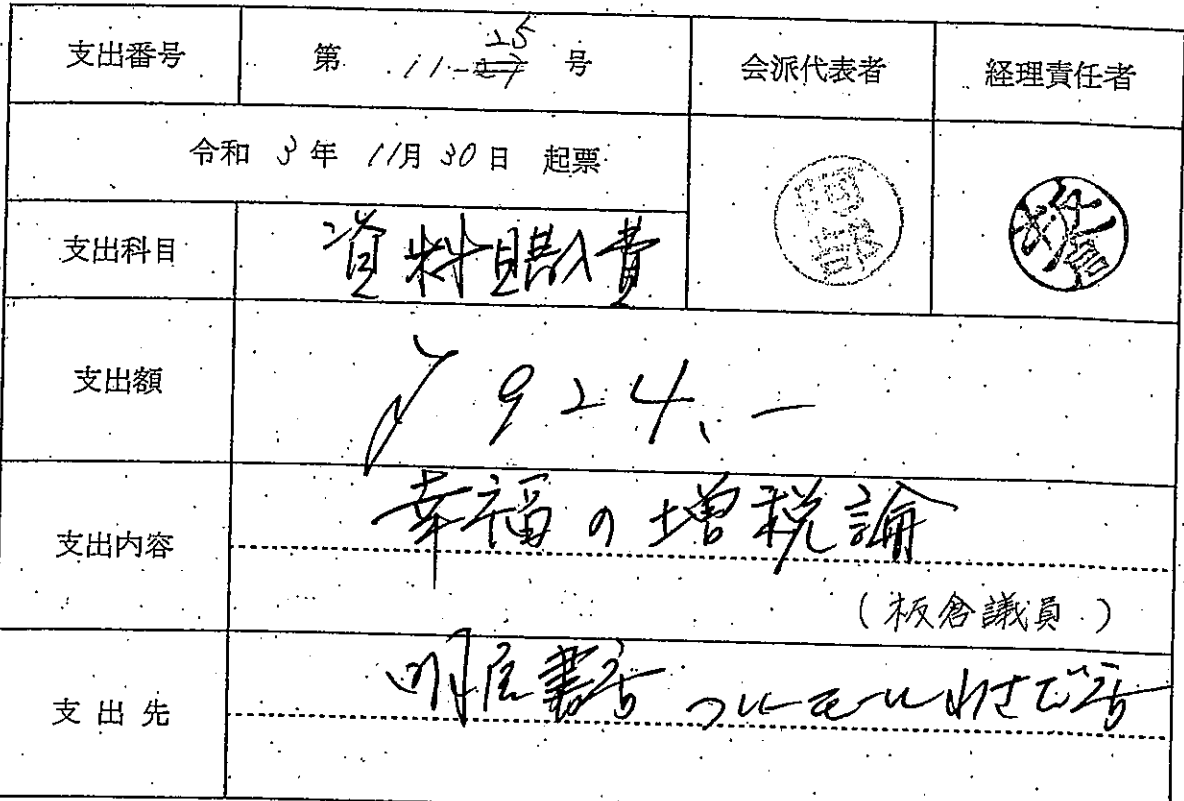 支出番号 第 11-25 号 会派代表者 経理責任者
令和 3 年 11月 30 日 起票
阿部
板倉
支出科目 資料購入費
支出額 ¥924.-
支出内容 幸福の増税論
(板倉議員)
支出先 明屋書店